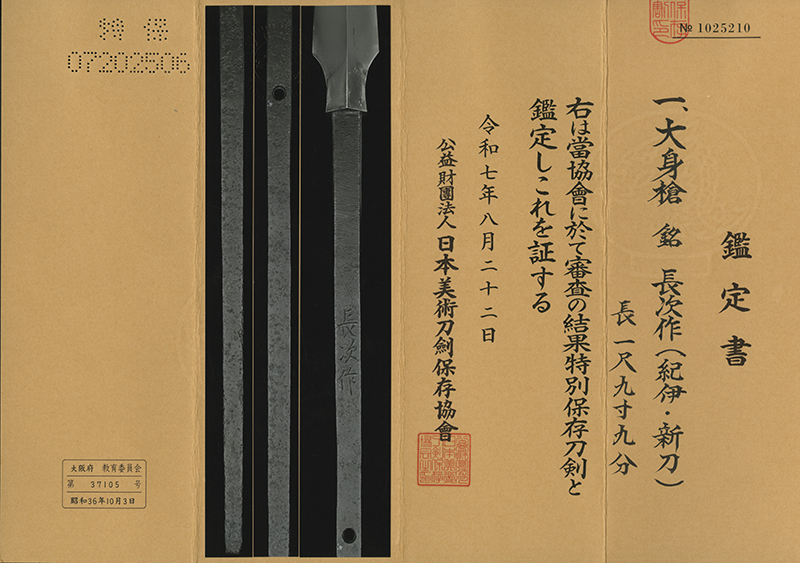 № 1025210
鑑定書
一、大身槍 銘 長次作(紀伊・新刀)
長 一尺九寸九分
右は當協會に於て審査の結果特別保存刀剣と
鑑定しこれを証する
令和七年八月二十二日
公益財團法人 日本美術刀劍保存協會
長次作
特 保
07202506
大阪府 教育委員会
第 37105 号
昭和36年10月3日